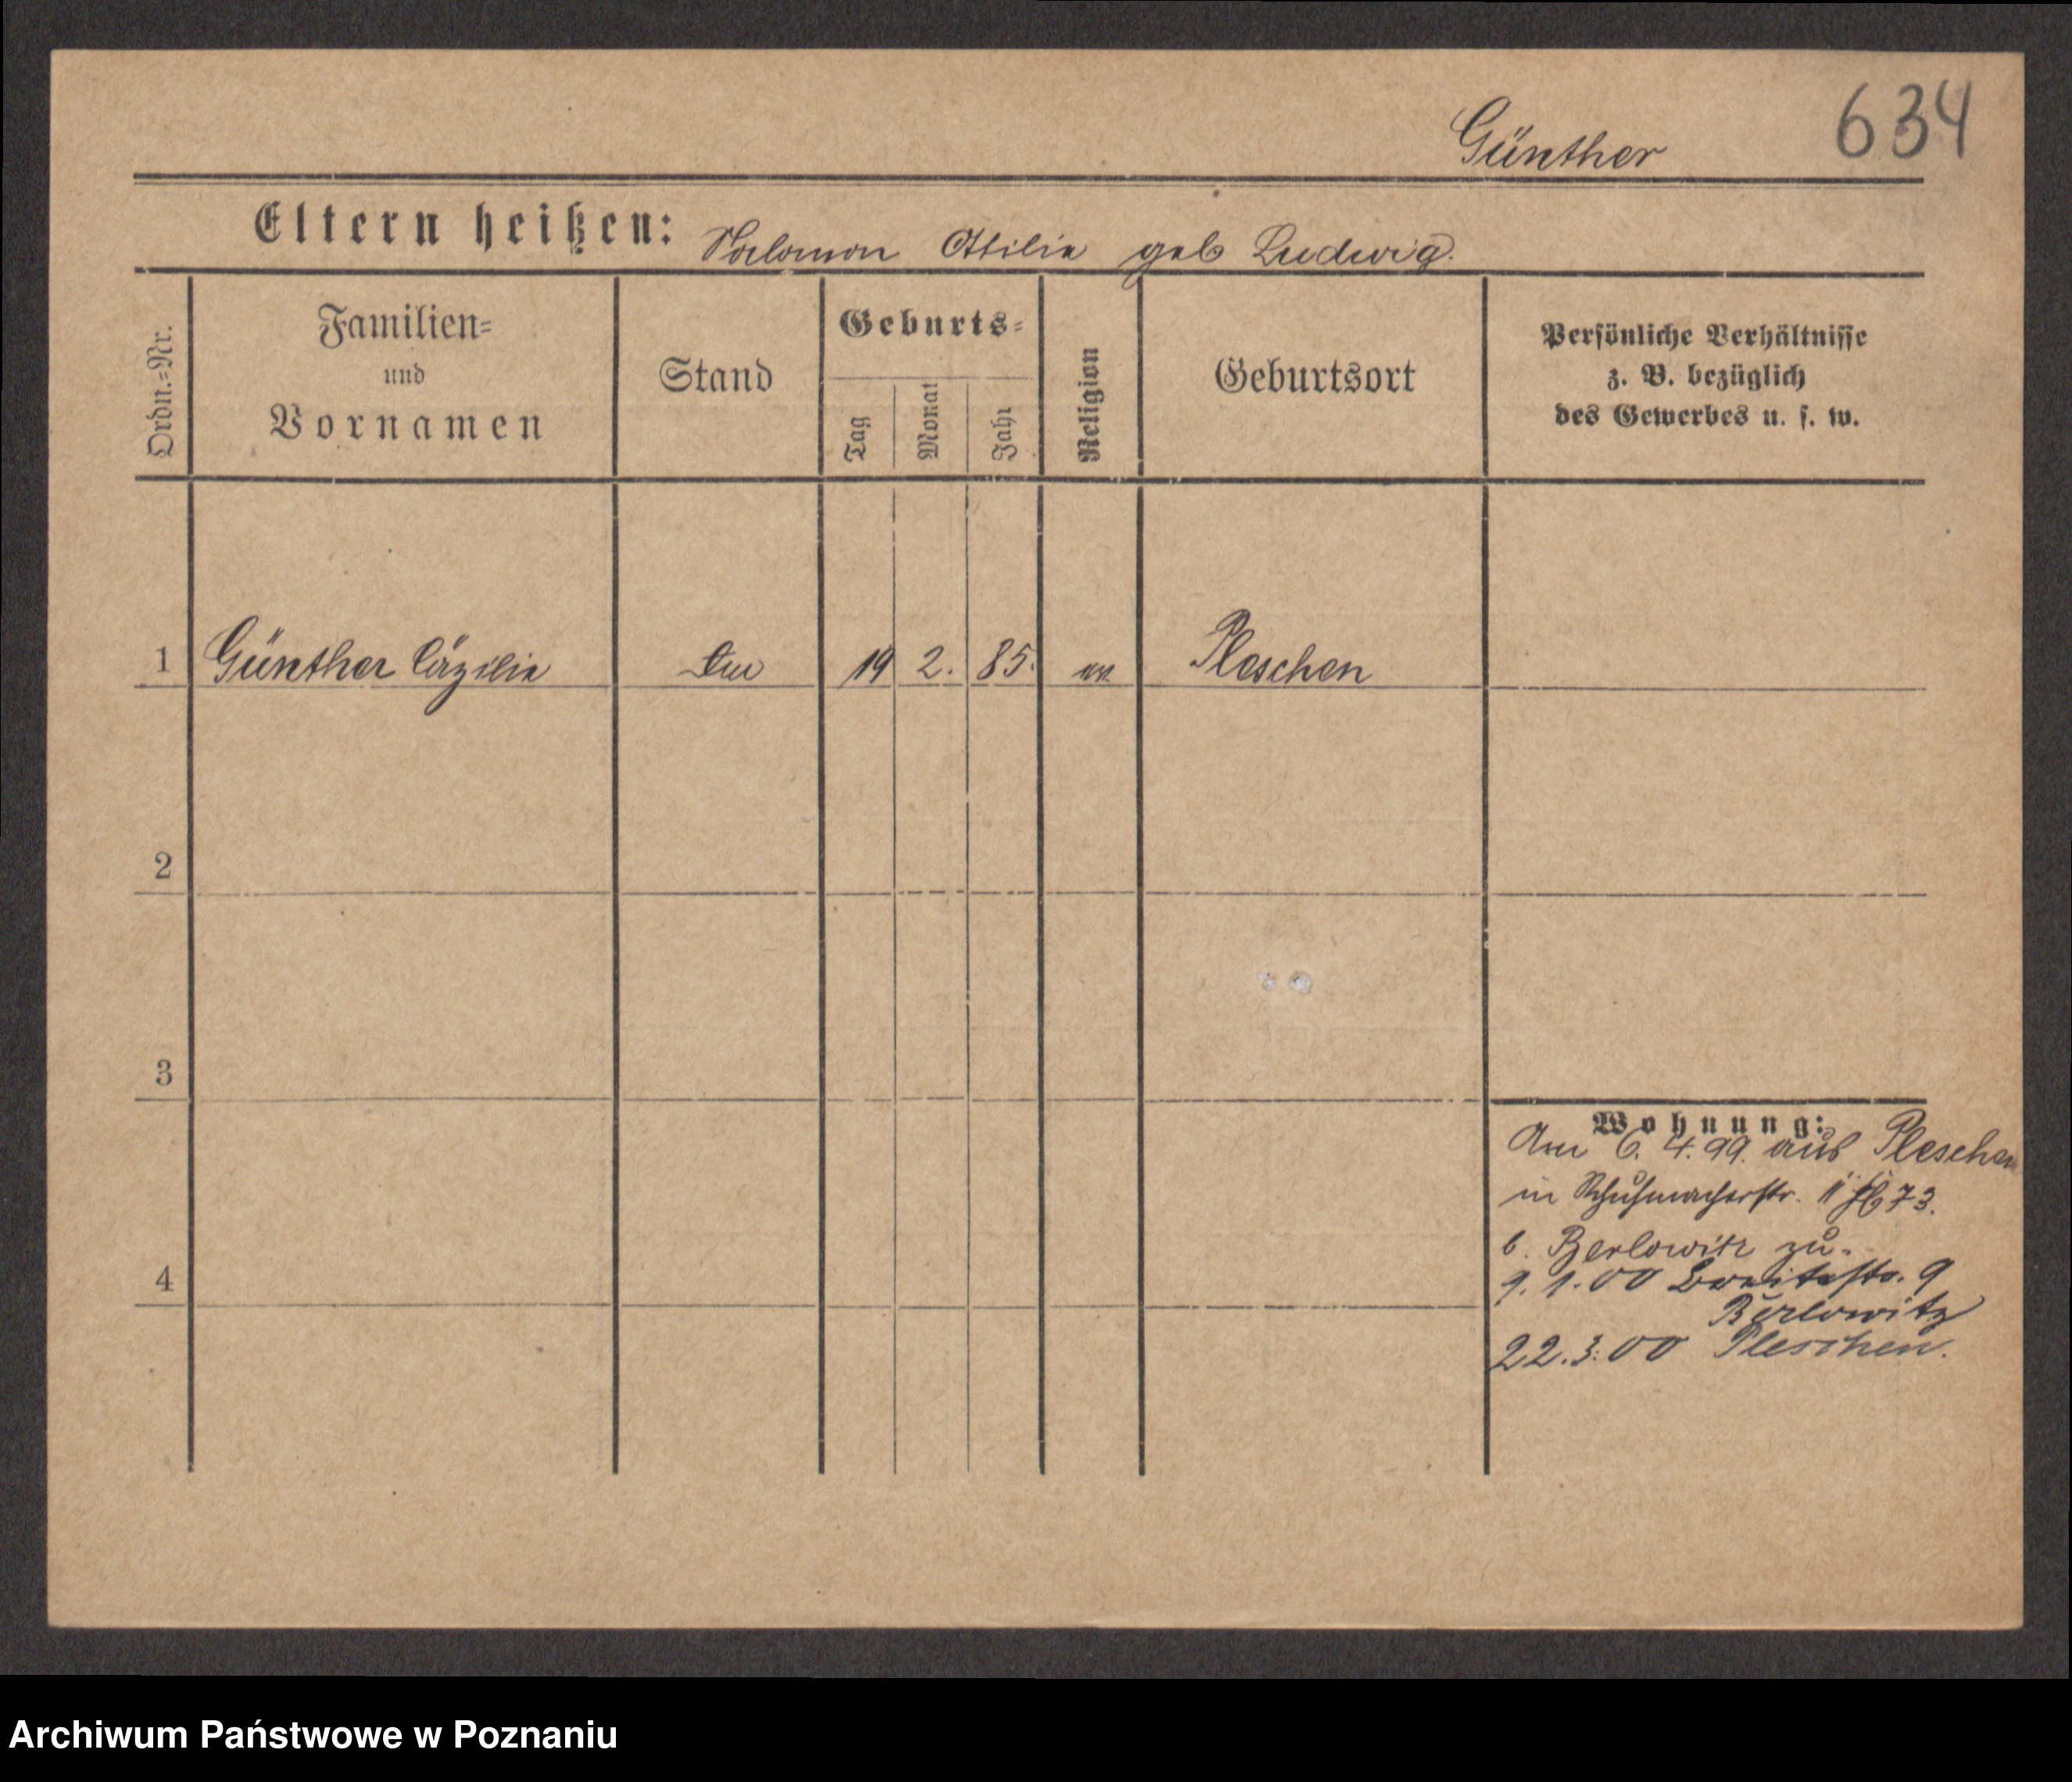 634
Günther
Eltern heißen: Salomon Ottilie geb Ludwig.
Ordn.=Nr.
Familien=
und
Vornamen
Stand
Geburts=
Tag
Monat
Jahr
Religion
Geburtsort
Persönliche Verhältnisse
z. B. bezüglich
des Gewerbes u. s. w.
1 Günther Cäzilie 19 2. 85. ev. Pleschen
2
3
4
Wohnung:
Am 6. 4. 99. aus Pleschen
in Schuhmacherstr. 11 73.
b. Berlowitz zu.
9. 1. 00 Breitestr. 9
Berlowitz
22. 3. 00 Pleschen.
Archiwum Państwowe w Poznaniu